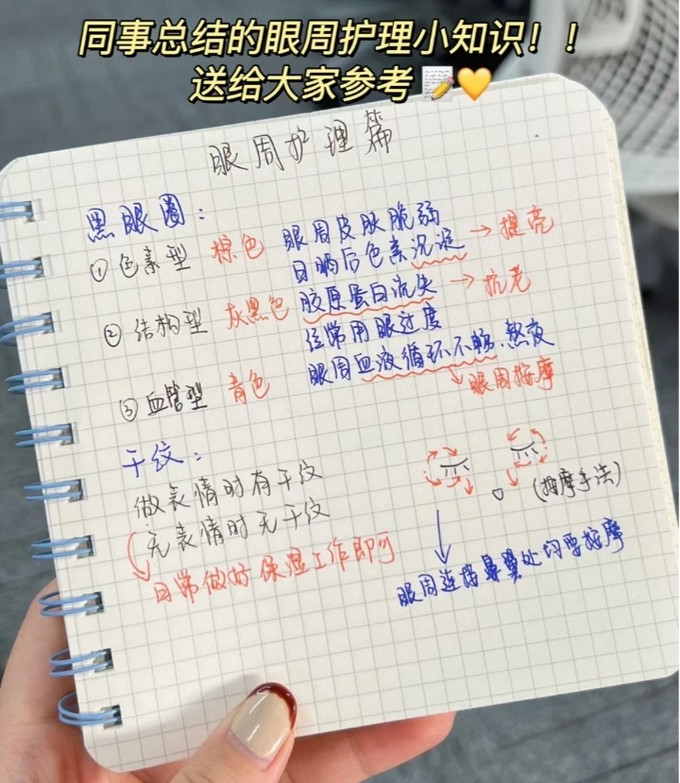 同事总结的眼周护理小知识！！
送给大家参考📝💛
眼周护理篇
黑眼圈：
①色素型 棕色 眼周皮肤脆弱
日晒后色素沉淀→提亮
②结构型 灰黑色 胶原蛋白流失→抗老
③血管型 青色 经常用眼过度
眼周血液循环不畅、熬夜
眼周按摩
干纹：
做表情时有干纹
无表情时无干纹
日常做好保湿工作即可
(按摩手法)
眼周连接鼻翼处均要按摩